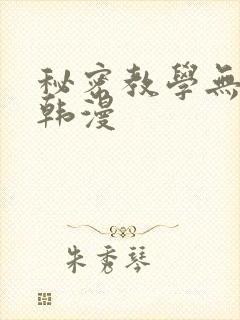 秘密教學無
韩漫
朱秀琴